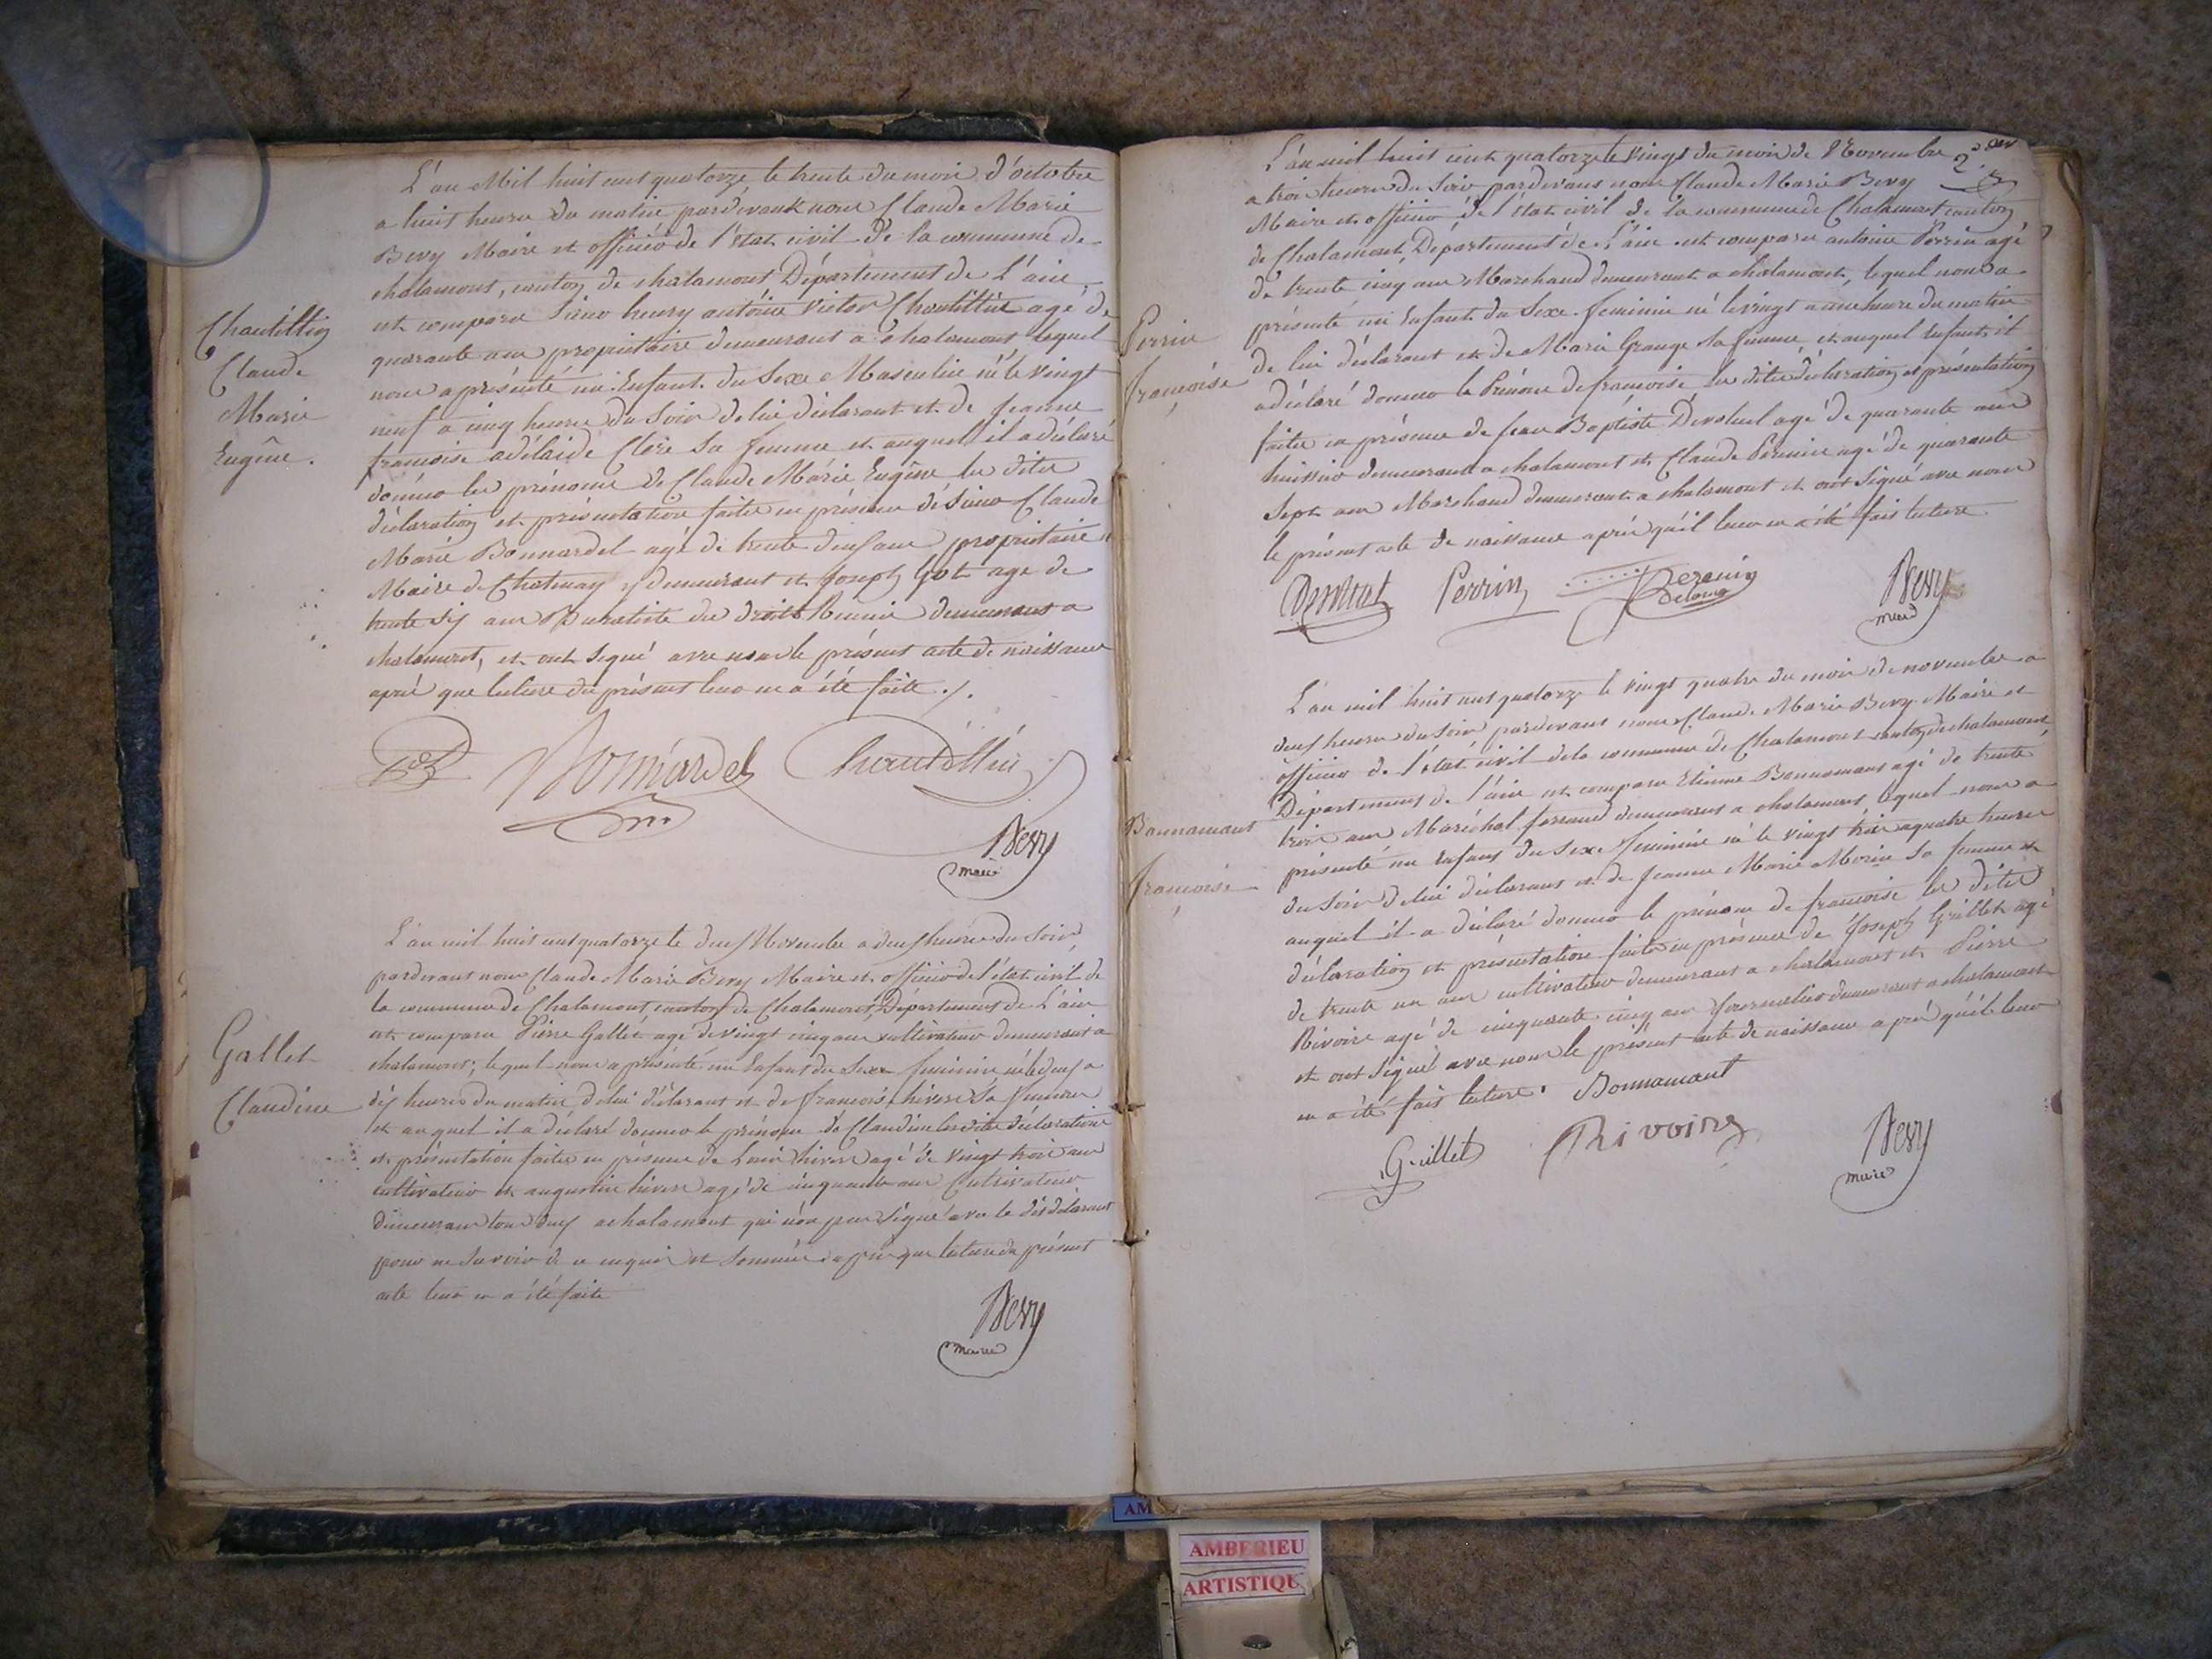 L'an Mil huit cent quatorze le trente du mois d'octobre
a huit heures du matin pardevant nous Claude Marie
Bevy Maire et officier de l'état civil de la commune de
chalamont, canton de chalamont Département de L'ain,
est comparu Sieur henry antoine victor Chantillin agé de
quarante ans propriétaire demeurant a chalamont lequel
nous a présenté un Enfant du Sexe Masculin né le vingt
neuf a cinq heures du Soir de lui déclarant et de jeanne
francoise adélaide Clère Sa femme et auquel il a déclaré
donner les prénoms de Claude Marie Eugène les dites
déclaration et présentation faites en présence de Sieur Claude
Marie Bonnardel agé de trente deux ans propriétaire
Maire de Chatenay y demeurant et Joseph Got agé de
trente six ans Buraliste des droits Réunis demeurant a
chalamont, et ont Signé avec nous le présent acte de naissance
aprés que lecture du présent leur en a été faite ./.
Chantillin
Claude
Marie
Eugène.
Bonnardel Chantillin
Bevy
maire
L'an mil huit cent quatorze le deux Novembre a deux heures du Soir
pardevant nous Claude Marie Bevy Maire et officier de l'état civil de
la commune de Chalamont, canton de Chalamont, Département de L'ain
est comparu Pierre Gallet agé de vingt cinq ans cultivateur demeurant a
chalamont; lequel nous a présenté un Enfant du Sexe feminin né le deux a
dix heures du matin de lui déclarant et de francoise hivere Sa femme
et auquel il a déclaré donner le prénom de Claudine les dites déclaration
et présentation faites en présence de Louis hivere agé de vingt trois ans
cultivateur et augustin hivere agé de cinquante ans Cultivateur
demeurant tous deux a chalamont qui n'on pas Signé avec le dit déclarant
pour ne Savoir de ce enquis et Sommés aprés que lecture du présent
acte leur en a été faite
Gallet
Claudine
Bevy
maire
L'an mil huit cent quatorze le vingt du mois de Novembre
a trois heures du Soir pardevant nous Claude Marie Bevy
Maire et officier de l'état civil de la commune de Chalamont canton
de Chalamont, Département de L'ain est comparu antoine Perrin agé
de trente cinq ans Marchand demeurant a chalamont, lequel nous a
présenté un Enfant du Sexe feminin né le vingt a une heure du matin
de lui déclarant et de Marie Grange Sa femme et auquel Enfant il
a déclaré donner le Prénom de francoise les dites déclaration et présentation
faites en présence de jean Baptiste Devoluet agé de quarante ans
huissier demeurant a chalamont et Claude Perenin agé de quarante
Sept ans Marchand demeurant a chalamont et ont Signé avec nous
le présent acte de naissance aprés qu'il leur en a été fait lecture
Perrin
francoise
Perrin
Bevy
maire
L'an mil huit cent quatorze le vingt quatre du mois de novembre a
deux heures du Soir pardevant nous Claude Marie Bevy Maire et
officier de l'état civil de la commune de Chalamont canton de chalamont
Département de l'ain est comparu Etienne Bonnamant agé de trente
trois ans Maréchal ferrand demeurant a chalamont, lequel nous a
présenté un Enfant du Sexe feminin né le vingt trois a quatre heures
du Soir de lui déclarant et de jeanne Marie Morin Sa femme et
auquel il a déclaré donner le prénom de francoise les dites
déclaration et présentation faites en présence de Joseph Grillet agé
de trente un ans cultivateur demeurant a chalamont et Pierre
Rivoire agé de cinquante cinq ans journalier demeurant a chalamont
et ont Signé avec nous le présent acte de naissance aprés qu'il leur
en a été fait lecture. Bonnamant
Bonnamant
francoise
Grillet Rivoire
Bevy
maire
AMBERIEU
ARTISTIQU